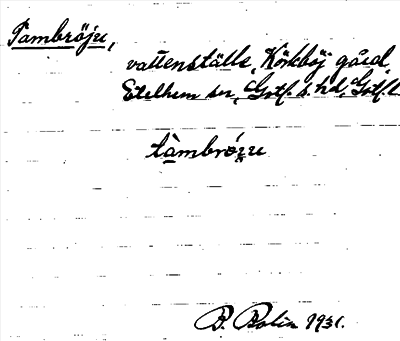 Tambröju,
vattenställe, Körkböj gård,
Etelhem sn, Gotl. s. hd, Gotl. l.
tàmbróju
B. Bolin 1931.